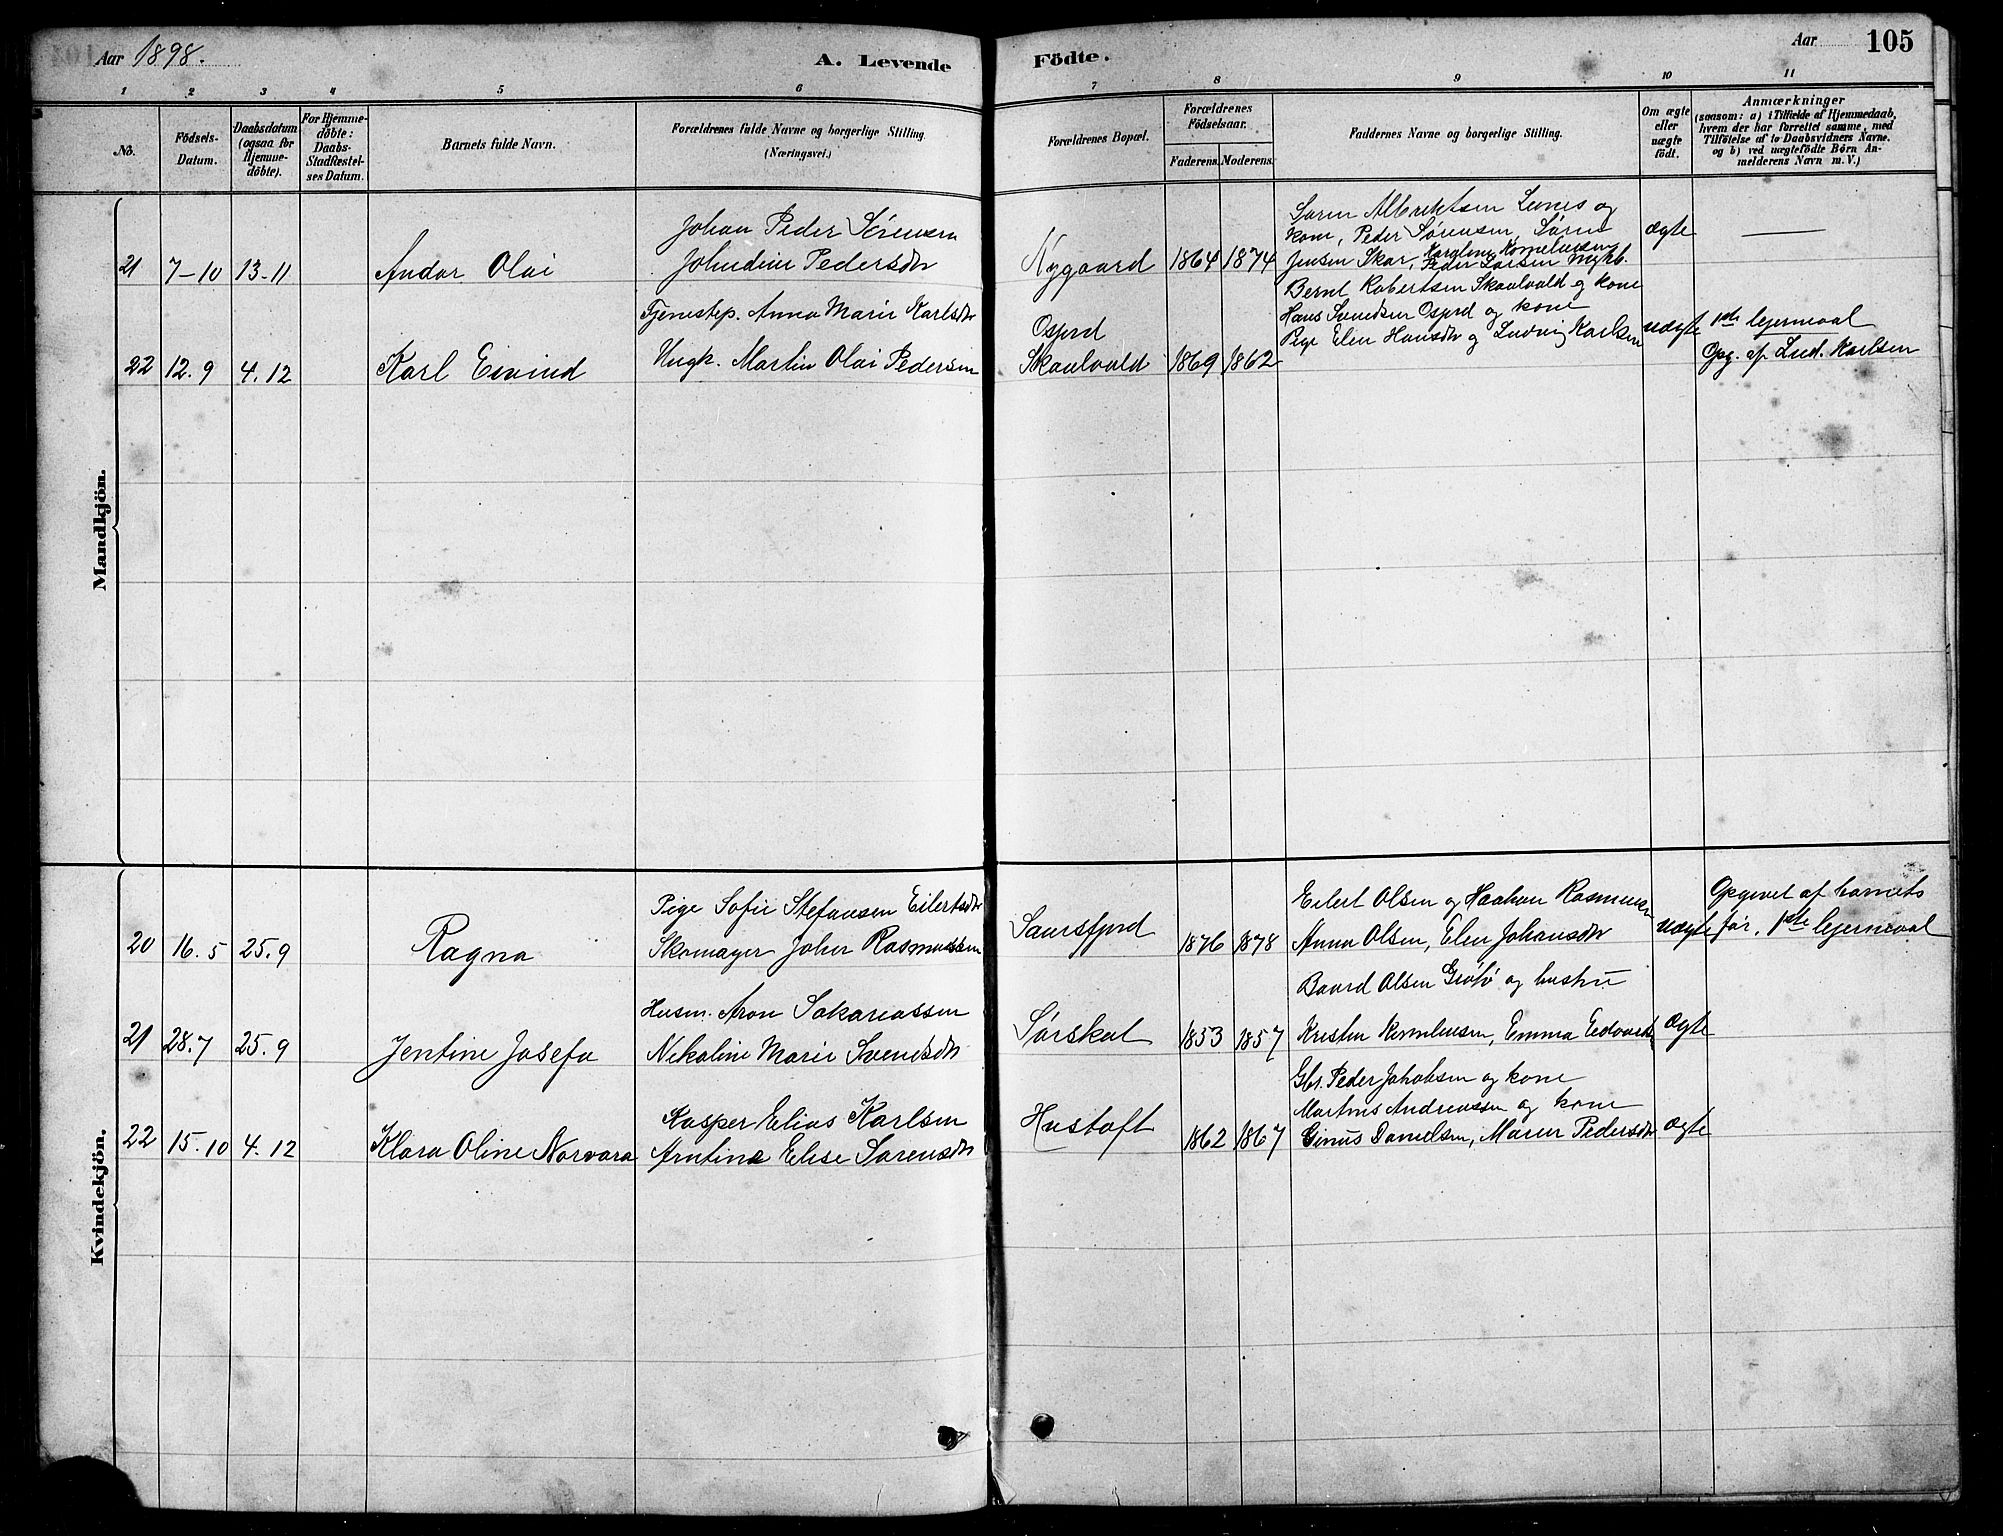 Aar 1898.
A. Levende
Födte.
Aar
105
1 2 3 4 5 6 7 8 9 10 11
No.
Födsels-Datum.
Daabsdatum (ogsaa for Hjemmedöbte).
For Hjemmedöbte: Daabs-Stadfæstelses Datum.
Barnets fulde Navn.
Forældrenes fulde Navne og borgerlige Stilling.
(Næringsvei.)
Forældrenes Bopæl.
Forældrenes Födselsaar.
Faderens. Moderens.
Faddernes Navne og borgerlige Stilling.
Om ægte eller uægte födt.
Anmærkninger
(saasom: a) i Tilfælde af Hjemmedaab, hvem der har forrettet samme, med Tilföielse af to Daabsvidners Navne. og b) ved uægtefödte Börn Anmelderens Navn m. V.)
Mandkjön.
21 7-10 13-11 Andor Olai
Johan Peder Sörensen
Johndine Pedersdtr
Nygaard 1864 1874
Soren Albrektsen Lunes og
kone, Peder Sørensen, Sørine
Jensen Skar, Karoline Kornelius​en
Peder Larsen Ungk.
ægte
22 12.9 4.12 Karl Eivind
Tjenestep. Anna Marie Karlsdtr
Ungk. Martin Olai Pedersen
Osfjord
Skaalvald 1869 1862
Bernt Robertsen Skaalvald og kone
Hans Svendsen Osfjord og kone
Pige Elen Hansdtr og Ludvig Karlsen
uægte
1ste lejermaal
Opg. af Lud. Karlsen
Kvindekjön.
20 16.5 25.9 Ragna
Pige Sofie Stefansen Eilertsdtr
Skomager Johan Rasmussen
Saursfjord 1876 1878
Eilert Olsen og Haakon Rasmussen
Anna Olsen, Elen Johansdtr
uægte
Opgivet af barnets
far, 1ste lejermaal
21 28.7 25.9 Jentine Josefa
Husm. Aron Sakariassen
Nikoline Marie Svendsdtr
Sørskot 1853 1857
Baard Olsen og hustru
Kristen Kornelius​en, Emma Edvards
ægte
22 15.10 4.12 Klara Oline Norvara
Kasper Elias Karlsen
Arntine Elise Sørensdtr
Hustoft 1862 1867
Gbr. Peder Jakobsen og kone
Martins Andreassen og kone
Ginus Danielsen, Maren Pedersdtr
ægte